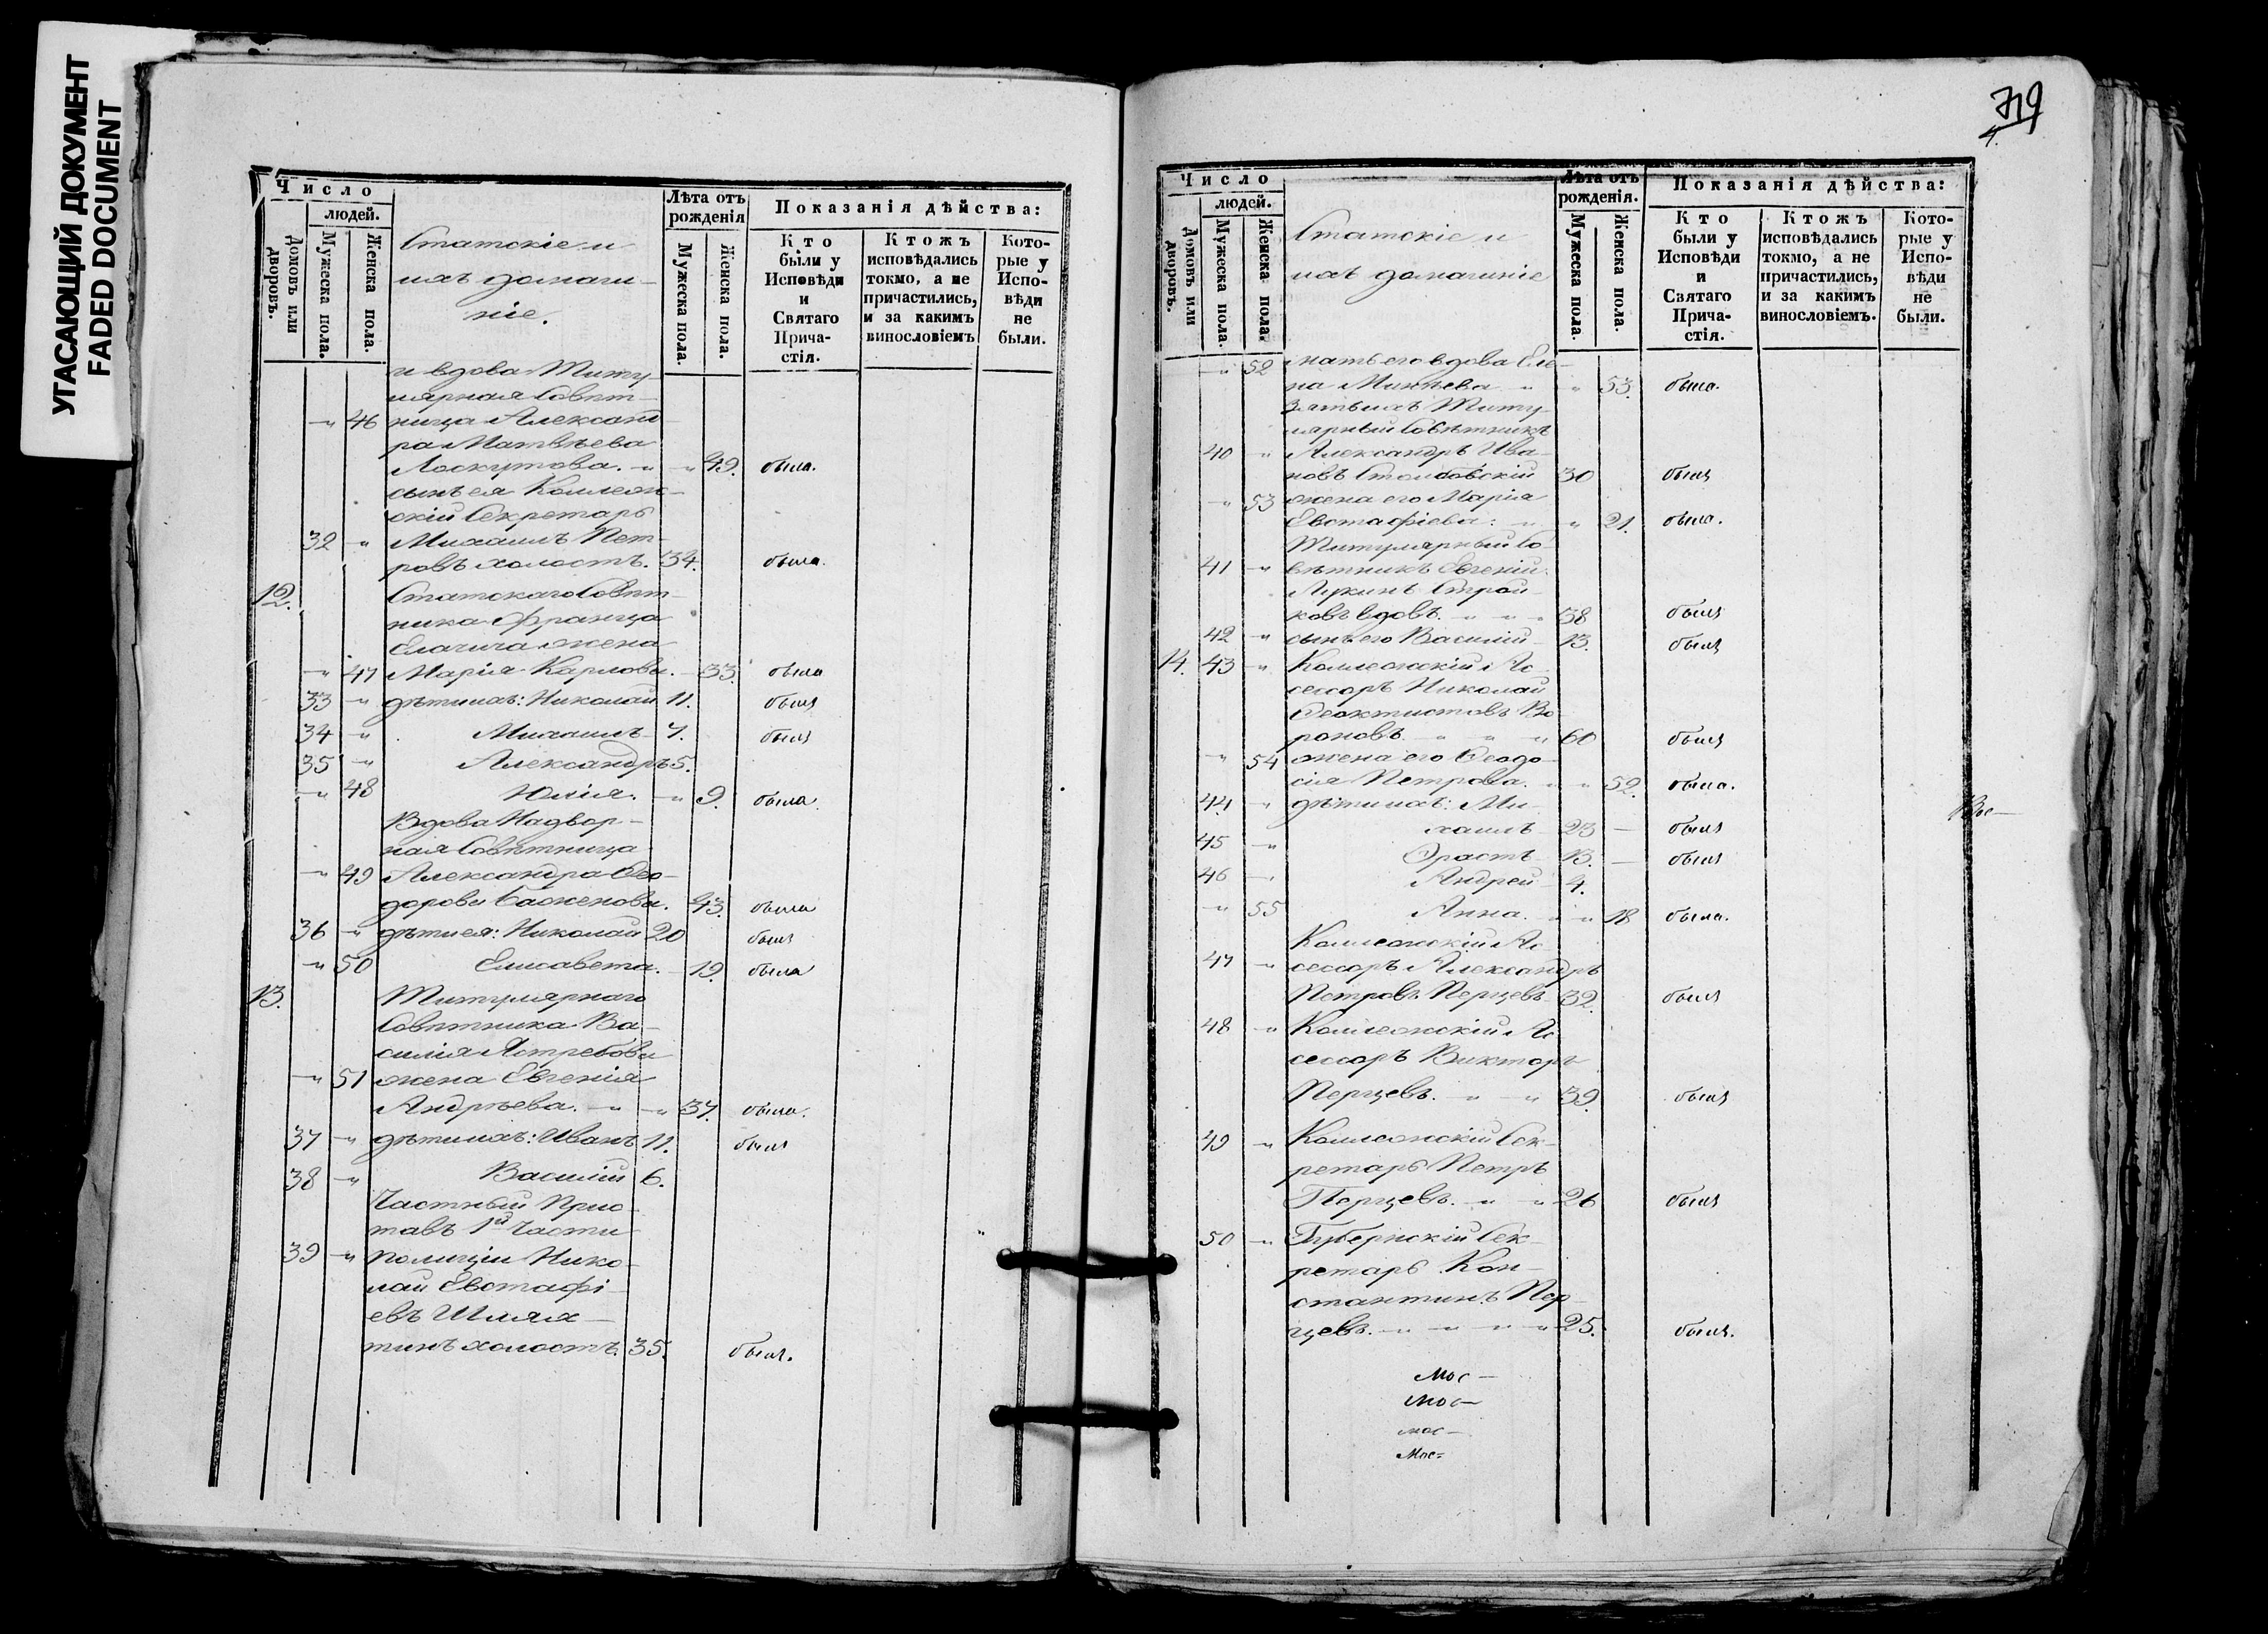 УГАСАЮЩИЙ ДОКУМЕНТ
FADED DOCUMENT
Число
людей.
Домовъ или дворовъ.
Мужеска пола.
Женска пола.
Статскіе и
ихъ домаш-
ніе.
Лѣта отъ рожденія
Мужеска пола.
Женска пола.
Показанія дѣйства:
Кто были у Исповѣди и Святаго Прича-стія.
Ктожъ исповѣдались токмо, а не причастились, и за какимъ винословіемъ
Кото-рые у Испо-вѣди не были.
и вдова Титу-
лярная Совѣт-
" 46 ница Александ-
ра Матвѣева
Лоскутова. " " 49. была.
сынъ ея Коллеж-
скій Секретарь
32 " Михаилъ Пет-
ровъ холостъ. 34. была.
12. Статскаго Совѣт-
ника Франца
Елачича жена
" 47 Марія Карлова. 33. была
33 " дѣти ихъ: Николай 11. былъ
34 " Михаилъ 7. былъ
35 " Александръ 5.
" 48 Юлія. " 9. была.
Вдова Надвор-
ная Совѣтница
" 49 Александра Ѳео-
дорова Баженова. 43. была
36 " дѣти ея: Николай 20 былъ
" 50 Елисавета. 19. была
13. Титулярнаго
Совѣтника Ва-
силія Ястребова
" 51 жена Евгенія
Андрѣева. " " 37. была.
37 " дѣти ихъ: Иванъ 11. былъ
38 " Василій 6.
Частный Прис-
тавъ 1й Части
39 " полиціи Нико-
лай Евстафі-
евъ Шлях-
тинъ холостъ. 35. былъ.
719
4.
Число
людей.
Домовъ или дворовъ.
Мужеска пола.
Женска пола.
Статскіе и
ихъ домашніе
Лѣта отъ рожденія.
Мужеска пола.
Женска пола.
Показанія дѣйства:
Кто были у Исповѣди и Святаго Прича-стія.
Ктожъ исповѣдались токмо, а не причастились, и за какимъ винословіемъ.
Кото-рые у Испо-вѣди не были.
" 52 мать его вдова Еле-
на " " 53. была.
Зять ихъ Титу-
лярный Совѣтникъ
40 " Александръ Ива-
новъ Столбовскій 30 былъ
" 53 жена его Марія
Евстафіева: " " 21. была.
Титулярный Со-
41 " вѣтникъ Евгеній
Лукинъ
вдовъ. " " " 38 былъ
42 " сынъ его Василій 13. былъ
14. 43 " Коллежскій Ас-
сессоръ Николай
Ѳеоктистовъ Во-
роновъ " " " 60 былъ
" 54 жена его Ѳеодо-
сія Петрова. " " 52. была.
44 " дѣти ихъ: Ми-
хаилъ 23 — былъ
45 " Эрастъ 13. — былъ
46 " Андрей 4.
" 55 Анна. " " 18 была.
Коллежскій Ас-
47 " сессоръ Александръ
Петровъ Перцевъ 32. былъ
48 " Коллежскій Ас-
сессоръ Викторъ
Перцевъ. " " 39. былъ
49 " Коллежскій Сек-
ретарь Петръ
Перцевъ. " " 26 былъ
50 " Губернскій Сек-
ретарь Кон-
стантинъ Пер-
цевъ. " " " " 25. былъ.
Мос—
Мос—
мос—
Мос-